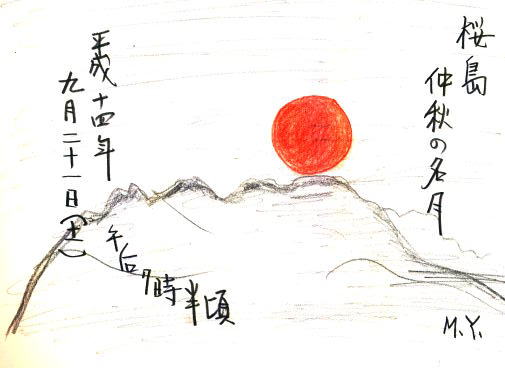 桜島
仲秋の名月
平成十四年
九月二十一日(土)
午后7時半頃
M.Y.